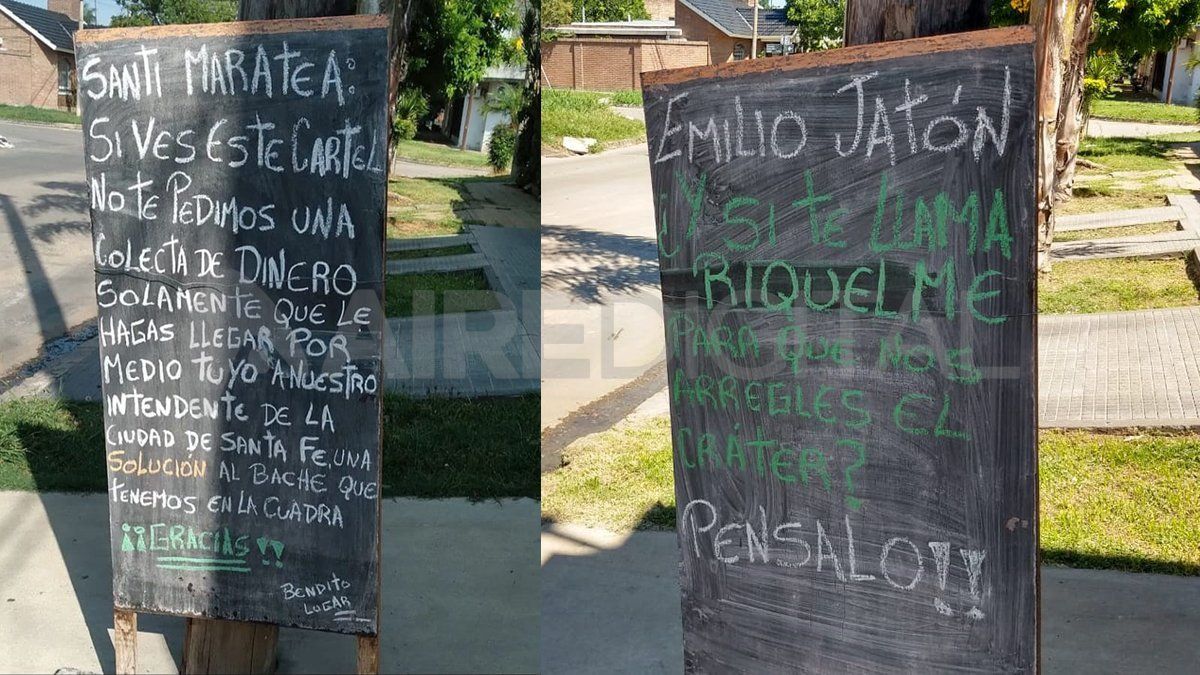 SANTI MARATEA:
SI VES ESTE CARTEL
NO TE PEDIMOS UNA
COLECTA DE DINERO
SOLAMENTE QUE LE
HAGAS LLEGAR POR
MEDIO TUYO A NUESTRO
INTENDENTE DE LA
CIUDAD DE SANTA FE, UNA
SOLUCIÓN AL BACHE QUE
TENEMOS EN LA CUADRA
¡¡GRACIAS!!
BENDITO
LUGAR
EMILIO JATÓN
¿Y SI TE LLAMA
RIQUELME
PARA QUE NOS
ARREGLES EL
CRÁTER?
PENSALO!!
AIREDIGITAL